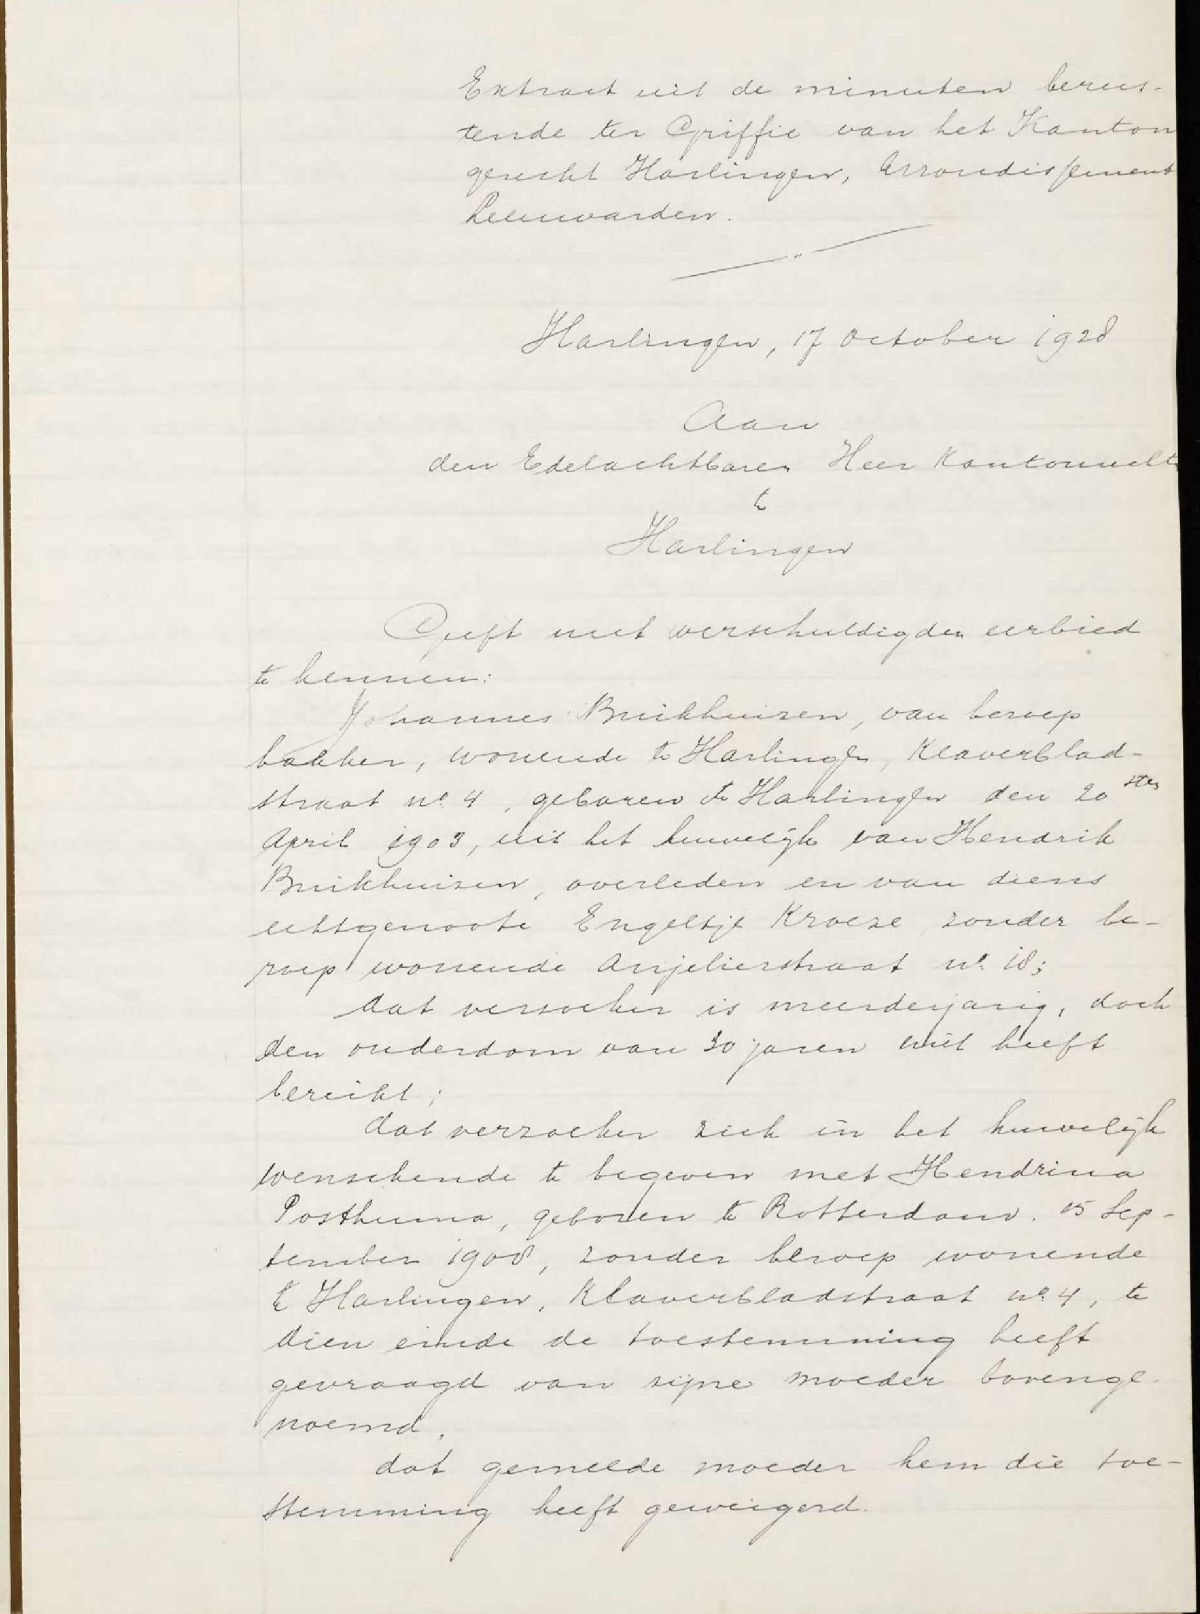 Extract uit de minuten berus-
tende ter Griffie van het Kanton
gerecht Harlingen, Arrondissement
Leeuwarden.
Harlingen, 17 October 1928
Aan
den Edelachtbaren Heer Kantonrecht
te
Harlingen
Geeft met verschuldigden eerbied
te kennen:
Johannes Bruikhuizen, van beroep
bakker, wonende te Harlingen, Klaverblad-
straat no. 4, geboren te Harlingen den 20sten
April 1903, uit het huwelijk van Hendrik
Bruikhuisen, overleden en van diens
echtgenoote Engeltje Kroeze zonder be-
roep wonende Anjelierstraat no. 18;
dat versoeker is meerderjarig, doch
den ouderdom van 30 jaren niet heeft
bereikt;
dat verzoeker zich in het huwelijk
wenschende te begeven met Hendrina
Posthuma, geboren te Rotterdam. 15 Sep-
tember 1908, zonder beroep wonende
te Harlingen, Klaverbladstraat no. 4, te
dien einde de toestemming heeft
gevraagd van zijne moeder bovenge-
noemd.
dat gemelde moeder hem die toe-
stemming heeft geweigerd.